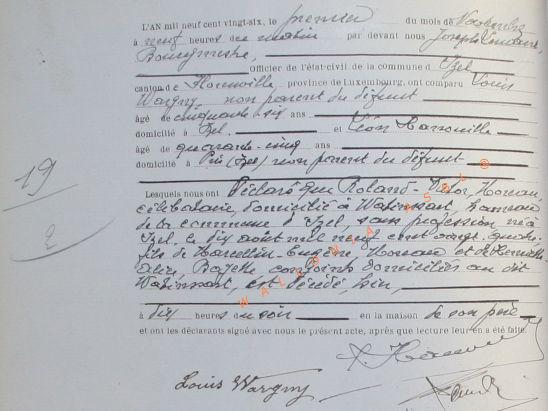 L'AN mil neuf cent vingt-six, le premier du mois de Novembre
à neuf heures du matin par devant nous Joseph
Bourgmestre,
Officier de l'état-civil de la commune d'Izel
canton de Florenville, province de Luxembourg, ont comparu Louis
Wargny, non parent du défunt
âgé de cinquante six ans
domicilié à Izel, et Léon
âgé de quarante-cinq ans
domicilié à Pin (Izel) non parent du défunt
Lesquels nous ont déclaré que Roland-Victor,
célibataire, domicilié à hameau
de la commune d'Izel sans profession né à
Izel, le dix août mil neuf cent vingt quatre
fils de et de
conjoints domiciliés au dit
est décédé, hier,
à dix heures du soir en la maison de son père
et ont les déclarants signé avec nous le présent acte, après que lecture leur en a été faite.
19
2
Louis Wargny
WALLONIA ASBL ©